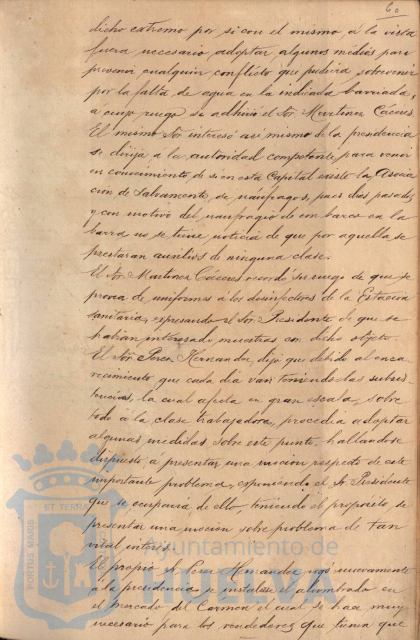 60
dicho extremo por si con el mismo á la vista
fuera necesario adoptar algunas medidas para
prevenir cualquier conflicto que pudiera sobrevenir
por la falta de agua en la indicada barriada,
á cuyo ruego se adhirió el Sr. Martinez Cáceres.
El mismo Sr. interesó asi mismo de la presidencia
se dirija á la autoridad competente para venir
en conocimiento de si en esta Capital existe la Asocia
cion de Salvamento de náufragos, pues dias pasados
y con motivo del naufragio de un barco en la
barra no se tiene noticia de que por aquella se
prestaran auxilios de ninguna clase.
El Sr. Martinez Cáceres recordó su ruego de que se
provea de uniformes á los desinfectores de la Estacion
sanitaria, expresando el Sr. Presidente de que se
habian interesado muestras con dicho objeto.
El Sr. Perez Hernandez, dijo que debido al enca
recimiento que cada dia van teniendo las subsis
tencias, la cual apela en gran escala, sobre
todo á la clase trabajadora, procedia adoptar
algunas medidas sobre este punto, hallandose
dispuesto á presentar una mocion respecto de este
importante problema, exponiendo el Sr. Presidente
que se ocuparia de ello, teniendo el propósito de
presentar una mocion sobre problema de tan
vital interés.
El propio Sr. Perez Hernandez rogó nuevamente
á la presidencia se instalase el alumbrado en
el mercado del Carmen el cual se hace muy
necesario para los vendedores que tienen que
PORTUS MARIS
ET TERRAE
Ayuntamiento de
HUELVA